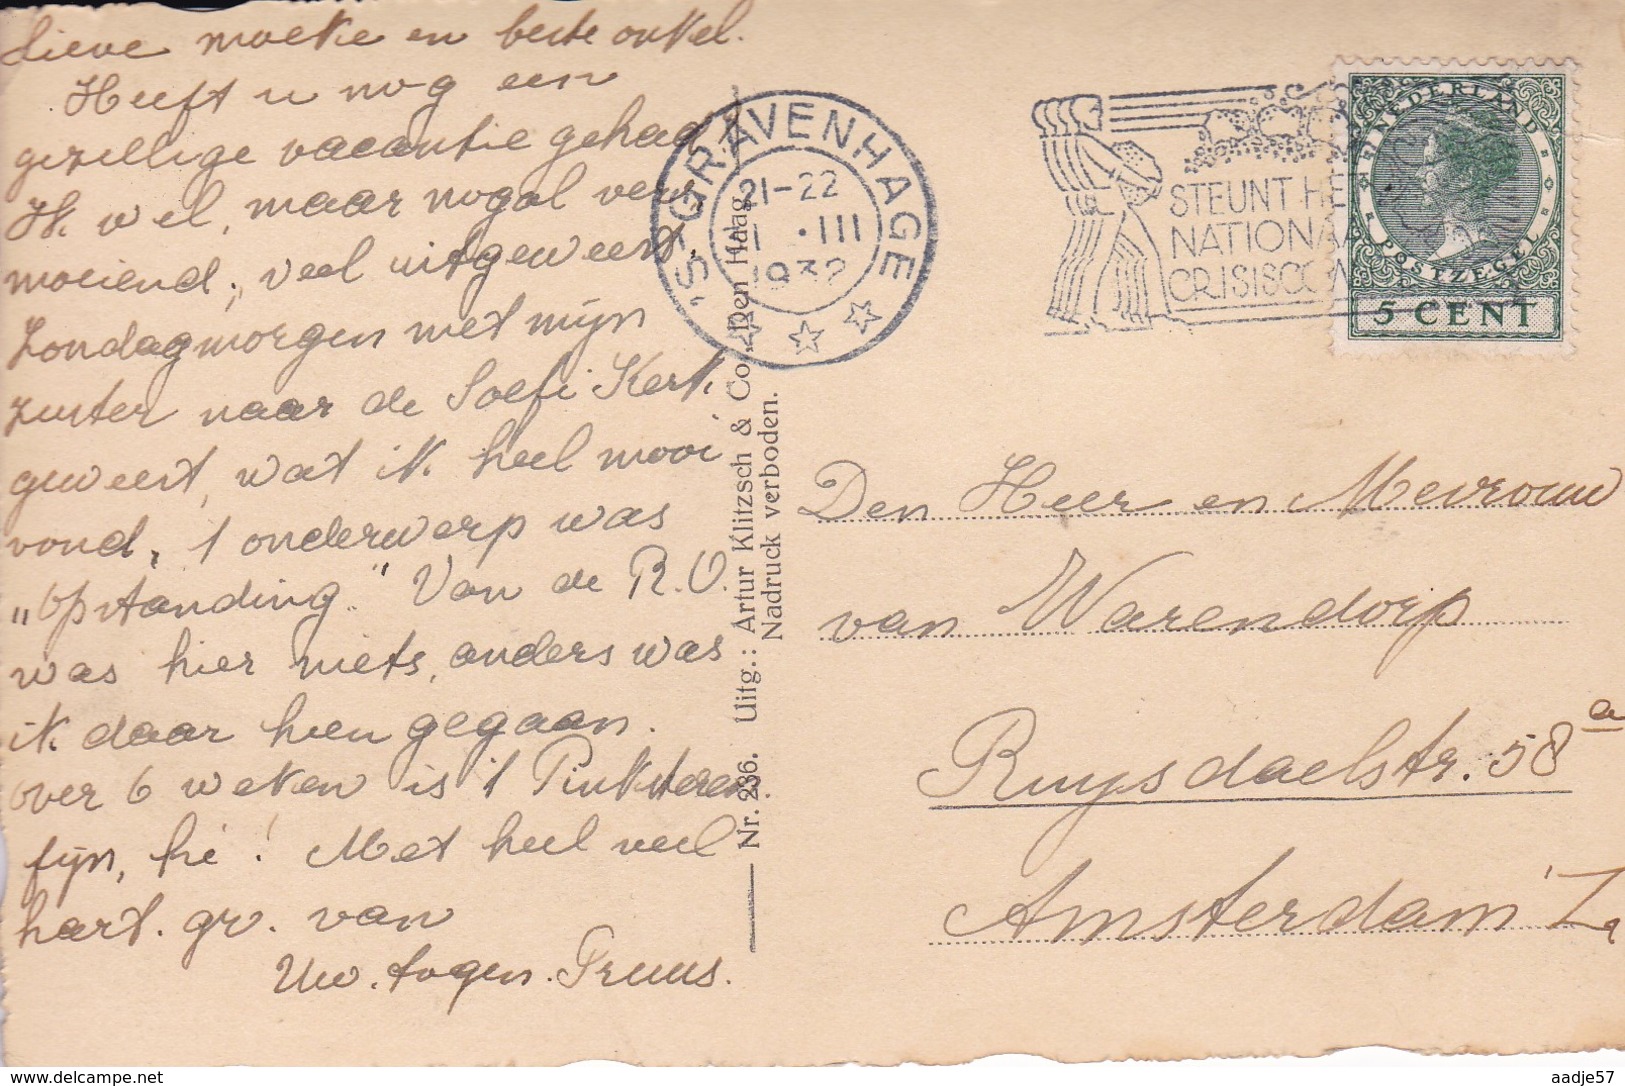 Lieve moeke en beste onkel.
Heeft u nog een
gezellige vacantie gehad,
Ik wel, maar nogal verm
moeiend, veel uitgeweest,
Zondagmorgen met mijn
zuster naar de Soefi Kerk
geweest, wat ik heel mooi
vond, 1 onderwerp was
"Opstanding." Van de R.O.
was hier niets, anders was
ik daar heen gegaan.
over 6 weken is 't Pinksteren
fijn, hè! Met heel veel
hart. gr. van
Uw. Truus.
'S GRAVENHAGE
21-22
1 .III
1932
STEUNT HE
NATIONA
CRISISCOM
NEDERLAND
POSTZEGEL
5 CENT
Nr. 236. Uitg.: Artur Klitzsch & Co., Den Haag.
Nadruck verboden.
Den Heer en Mevrouw
van Warendorp
Ruysdaelstr. 58a
Amsterdam Z
aadje57